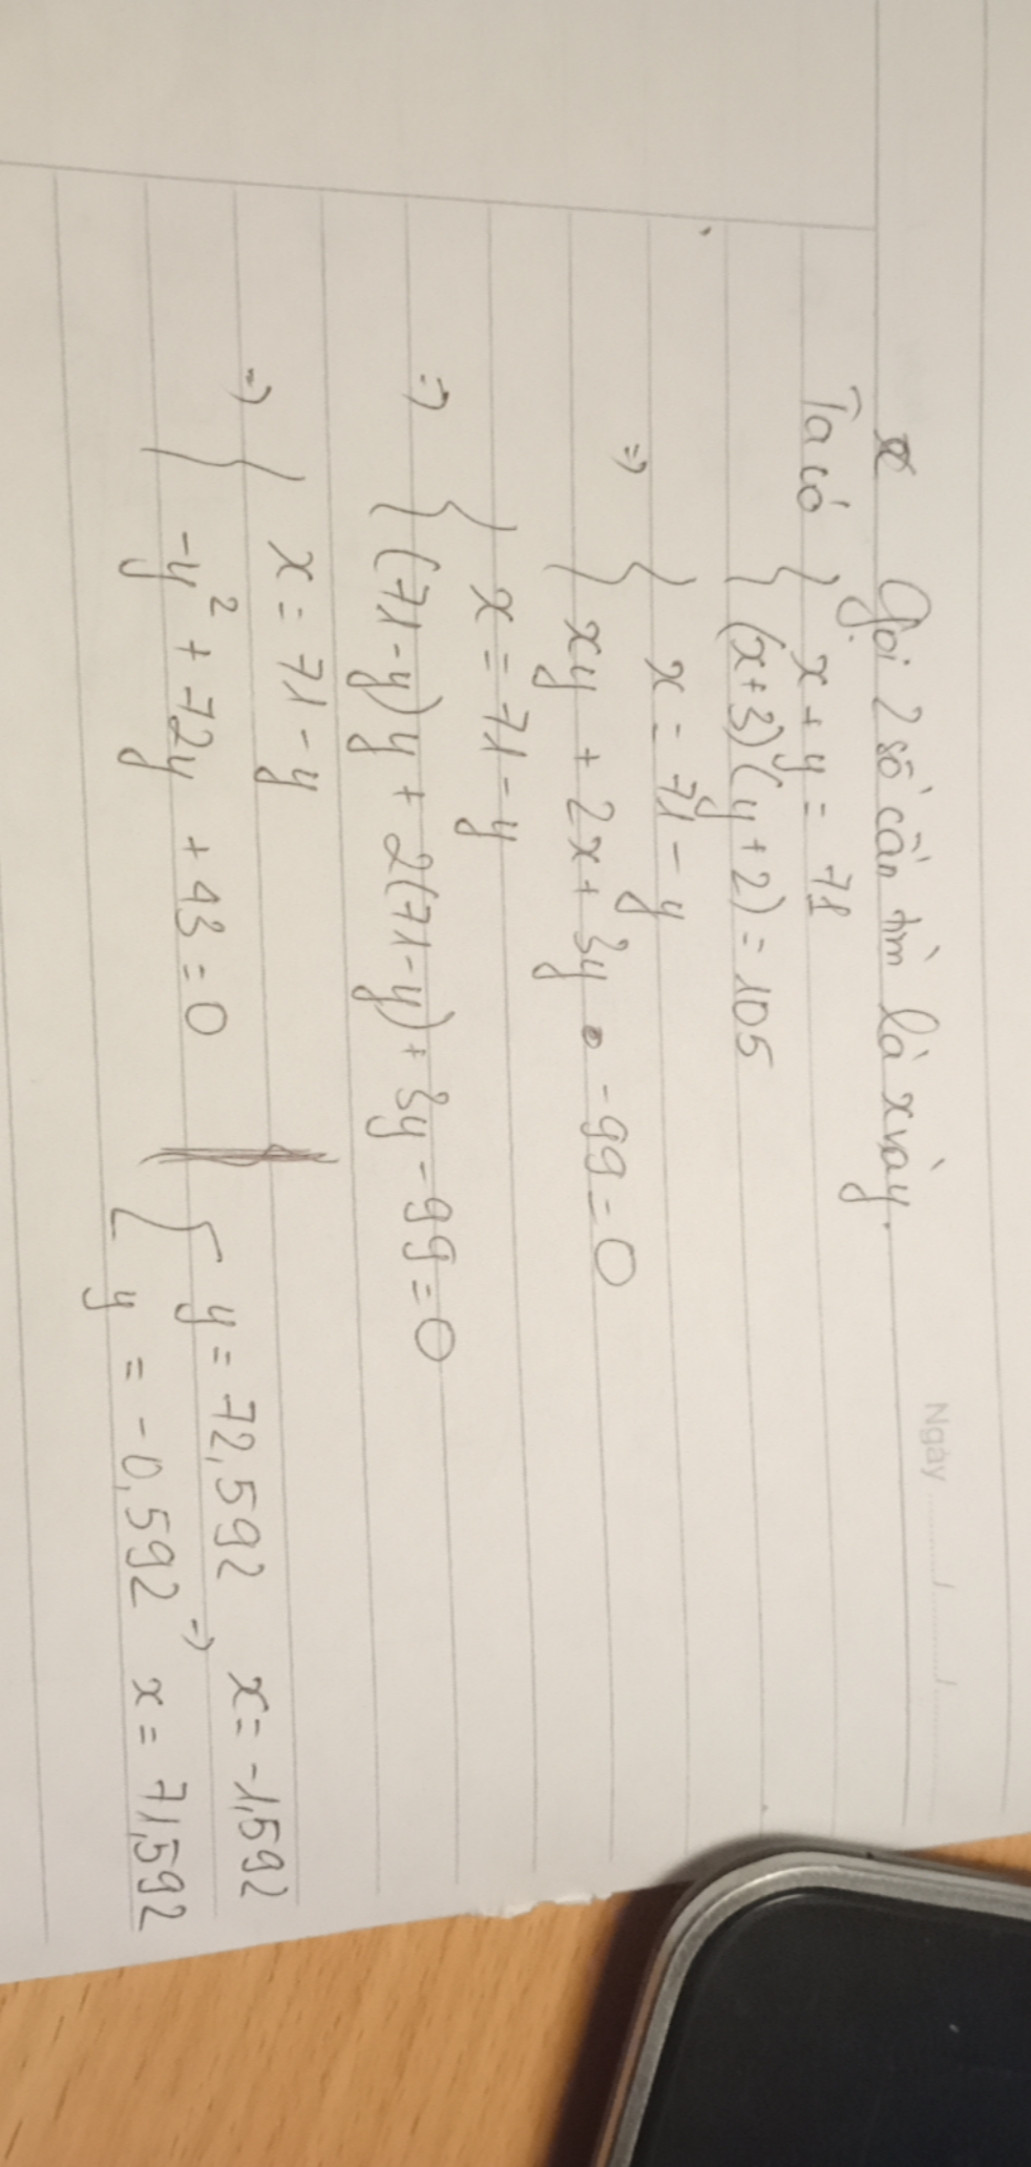 Ngày ......../......../........
Gọi 2 số cần tìm là x và y.
Ta có { x + y = 71
(x+3)(y+2) = 105
=> { x = 71 - y
xy + 2x + 3y - 99 = 0
{ x = 71 - y
=> (71-y)y + 2(71-y) + 3y - 99 = 0
=> { x = 71 - y
-y² + 72y + 43 = 0
[ y = 72,592 => x = -1,592
y = -0,592 x = 71,592